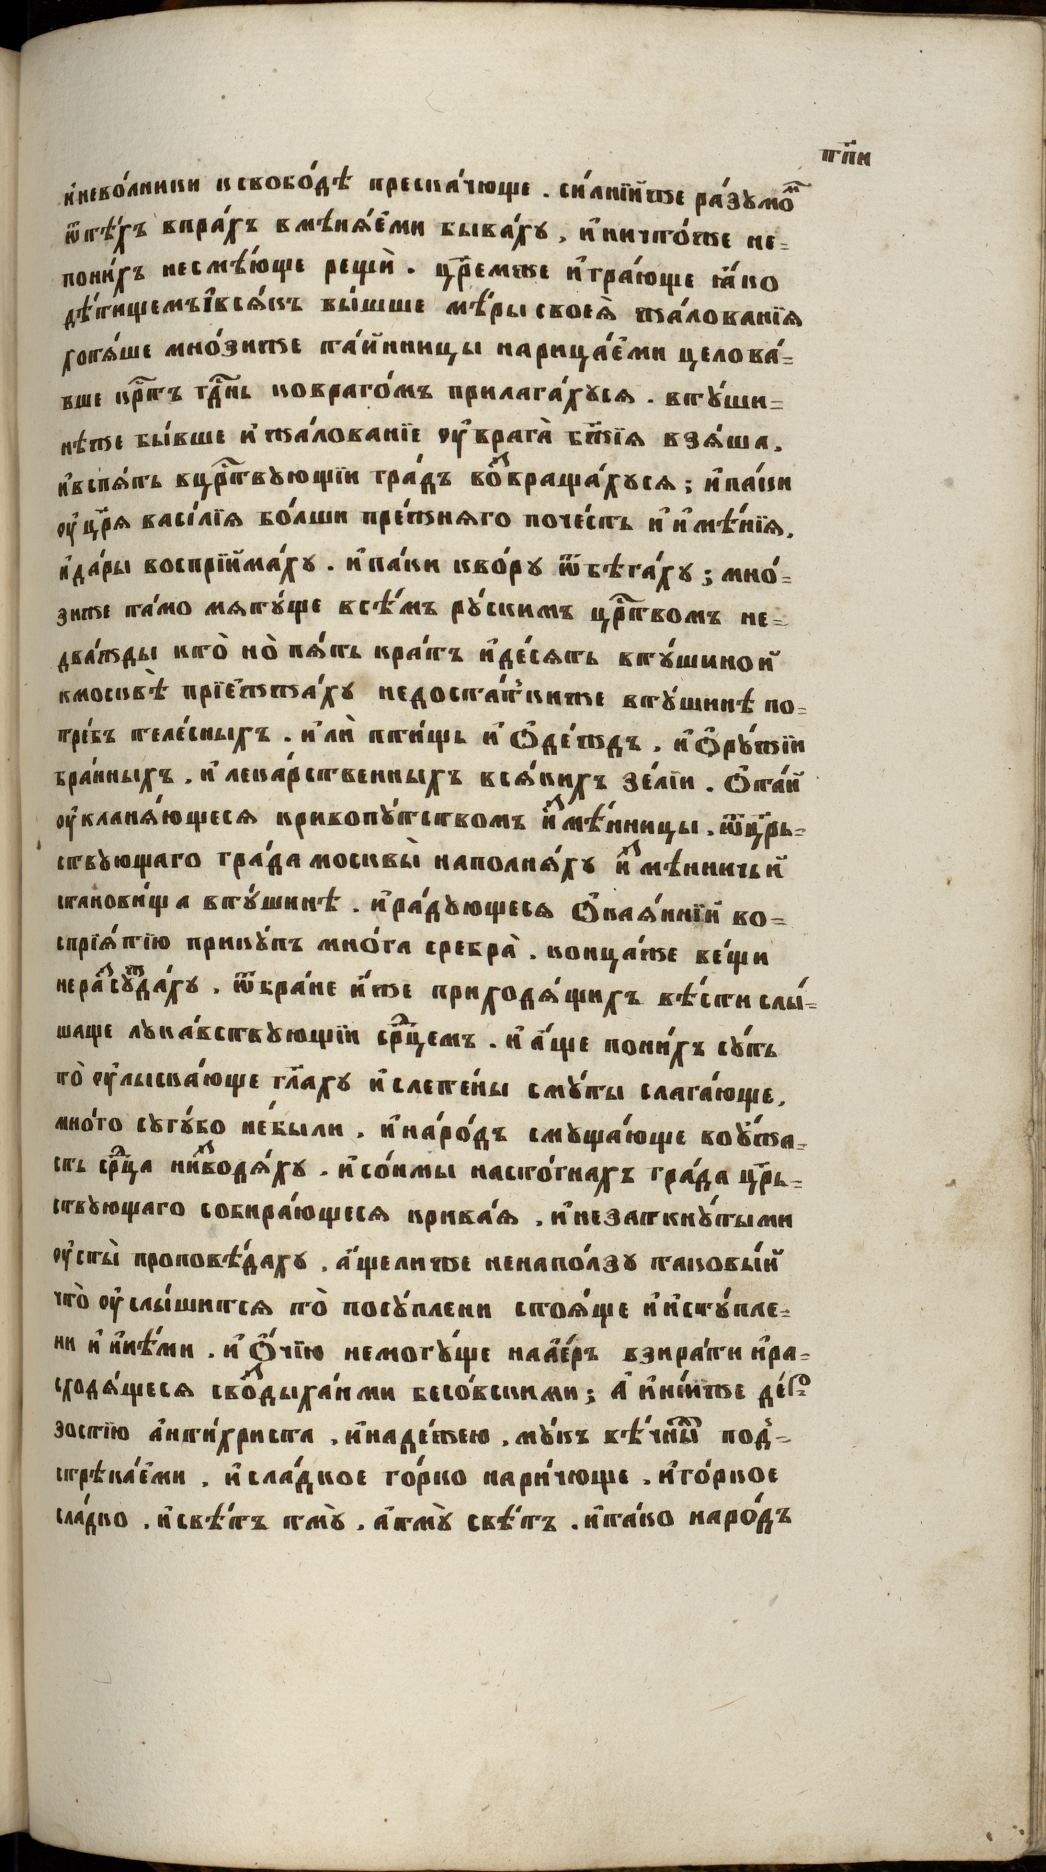 п҃и
и҆нево́лники ксвобо́дѣ преска́чюще . си́лнїиже ра́зумом
ѿтѣ́хъ впра́хъ вмѣнѧ́еми быва́ху , и҆ничто́же не=
пони́хъ несмѣ́юще рещѝ . цр҃емже и҆гра́юще ꙗ҆́ко
дѣ́тищемъ и҆всѧ́къ вы́шше мѣ́ры своеѧ̀ жа́лованїѧ
хотѧ́ше мно́зиже та́йницы нарица́еми целова́=
вше крⷭ҇тъ гдⷭ҇нь ковраго́мъ прилага́хусѧ . вту́ши=
нѣже бы́вше и҆ жа́лованїе ѹ҆врага̀ бж҃їѧ взѧ́ша ,
и҆вспѧ́ть вцрⷭ҇твующїи гра́дъ воⷥвраща́хусѧ ; и҆па́ки
ѹ҆ цр҃ѧ васі́лїѧ бо́лши пре́жнѧго поче́сть и҆ и҆мѣ́нїѧ ,
и҆да́ры воспрїйма́ху . и҆па́ки кво́ру ѿбѣга́ху ; мно́=
зиже та́мо мѧту́ще всѣ́мъ ру́скимъ црⷭ҇твомъ не=
два́жды кто̀ но̀ пѧ́ть кра́тъ и҆де́сѧть вту́шиной
кмосквѣ̀ прїежжа́ху недоста́ткиже вту́шинѣ по=
тре́бъ теле́сныхъ . и҆лѝ пи́щь и҆ ѻ҆де́ждъ , и҆ ѻ҆ру́жїи
бра́нныхъ , и҆ лека́рственныхъ всѧ́кихъ зе́лїи . ѻ҆та́й
ѹ҆кланѧ́ющесѧ кривопу́тствомъ и҆ⷥмѣ́нницы , ѿцр҃ь=
ствующаго гра́да москвы̀ наполнѧ́ху и҆ⷥмѣнничьи
станови́ща вту́шинѣ . и҆ра́дующесѧ ѻ҆каѧ́ннїй во=
спрїѧ́тїю прику́пъ мно́га сребра̀ , конца́же ве́щи
нераⷥсуⷤда́ху , ѿбра́не и҆́же приходѧ́щихъ вѣ́сти слы́=
шаще лука́вствующїи срⷣцемъ . и҆ а҆́ще пони́хъ су́ть
то̀ ѹ҆лыска́юще гл҃аху и҆сплете́ны сму́ты слага́юще ,
мно́го сугу́бо не́были . и҆наро́дъ смуща́юще воу҆́жа=
сть срⷣца ниⷥводѧ́ху . и҆со́нмы насто́гнахъ гра́да цр҃ь=
ствующаго собира́ющесѧ крива́ѧ , и҆незаткну́тыми
ѹ҆сты̀ проповѣ́даху , а҆́щелиже ненапо́лзу таковы́й
что̀ ѹ҆слы́шитсѧ то̀ посу́плени стоѧ́ще и҆ и҆сту́пле=
ни и҆ и҆нѣ́ми . и҆ ѻ҆́чїю немогу́ще нааѐръ взира́ти и҆ра=
сходѧ́щесѧ своⷥдыха́ними бесо́вскими ; а҆ и҆ни́иже де́р=
зостїю а҆нти́христа , и҆наде́жею , му́къ вѣ́чныⷯ под=
стрѣка́еми , и҆сла́дкое го́рко нари́чюще , и҆го́ркое
сла́дко , и҆свѣ́тъ тму̀ , а҆тму̀ свѣ́тъ . и҆та́ко наро́дъ